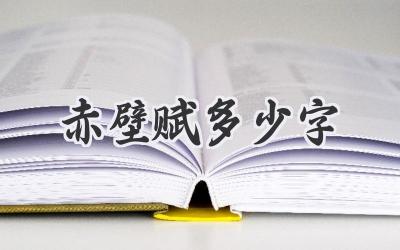 赤壁赋多少字